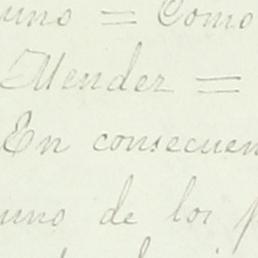 uno = Como
Mendez =
En consecuen
uno de los p